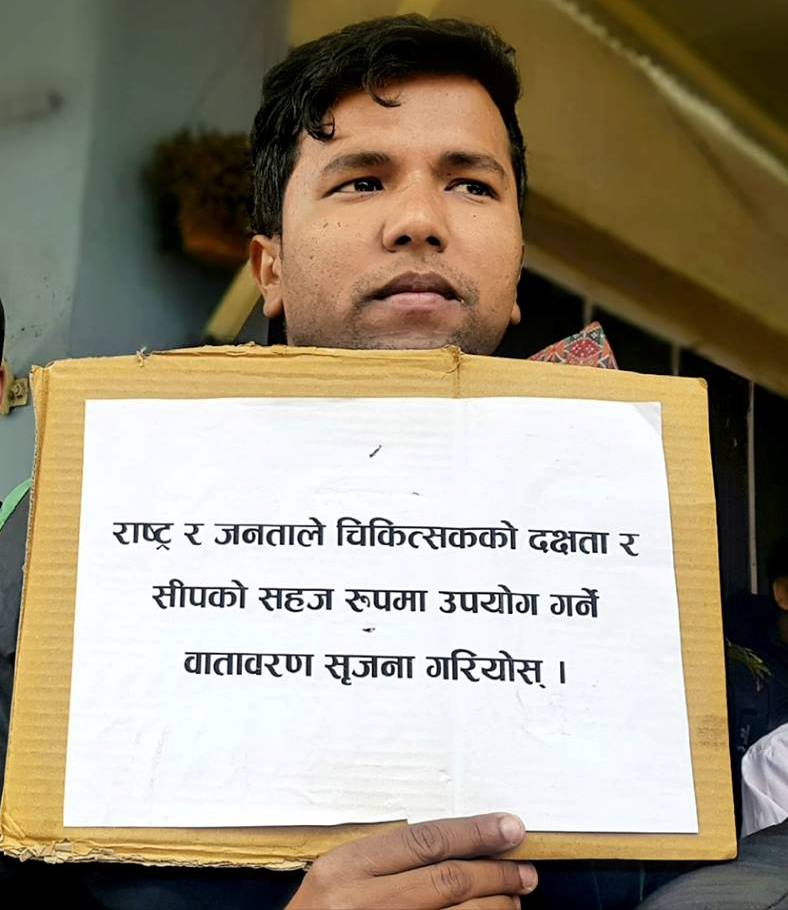 राष्ट्र र जनताले चिकित्सकको दक्षता र
सीपको सहज रुपमा उपयोग गर्ने
वातावरण सृजना गरियोस् ।